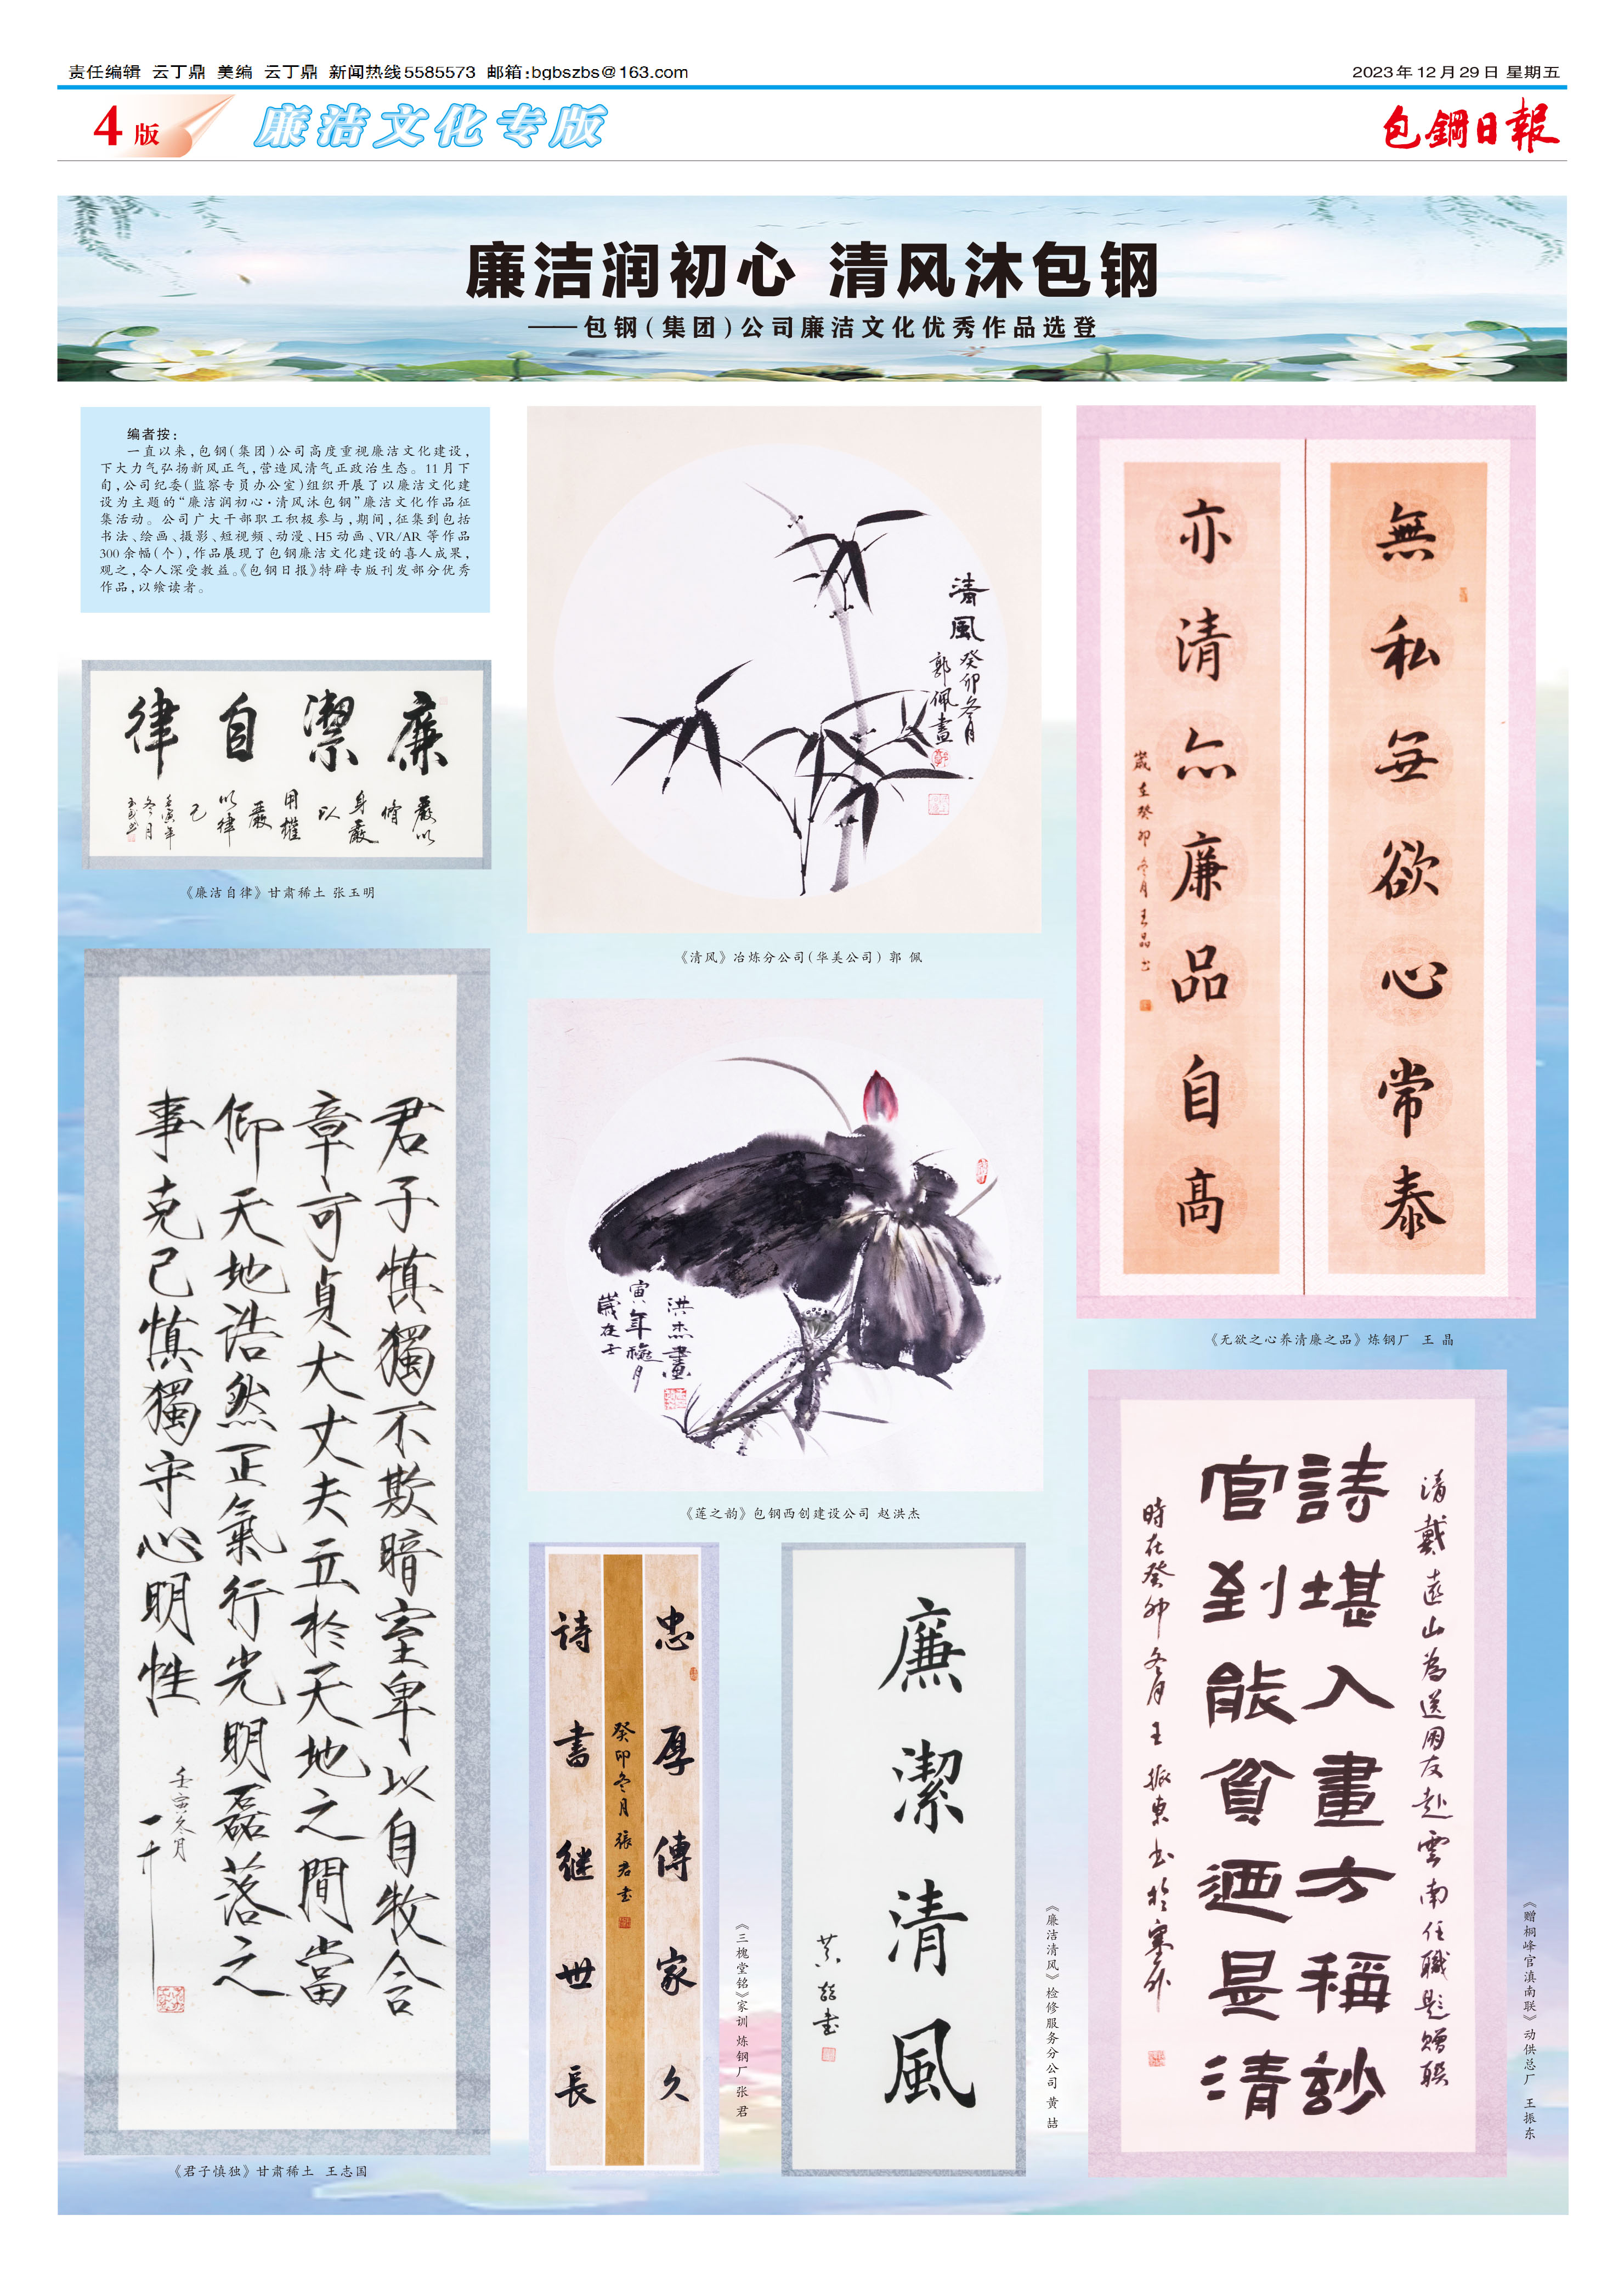 责任编辑 云丁鼎 美编 云丁鼎 新闻热线5585573 邮箱:bgbszbs@163.com
2023年12月29日 星期五
4版
廉洁文化专版
包鋼日報
廉洁润初心 清风沐包钢
——包钢(集团)公司廉洁文化优秀作品选登
编者按:
一直以来,包钢(集团)公司高度重视廉洁文化建设,
下大力气弘扬新风正气,营造风清气正政治生态。11月下
旬,公司纪委(监察专员办公室)组织开展了以廉洁文化建
设为主题的“廉洁润初心·清风沐包钢”廉洁文化作品征
集活动。公司广大干部职工积极参与,期间,征集到包括
书法、绘画、摄影、短视频、动漫、H5动画、VR/AR等作品
300余幅(个),作品展现了包钢廉洁文化建设的喜人成果,
观之,令人深受教益。《包钢日报》特辟专版刊发部分优秀
作品,以飨读者。
廉潔自律
嚴以
脩
身嚴
以
用權
嚴
以律
己
壬寅年
冬月
《廉洁自律》甘肃稀土 张玉明
君子慎獨不欺暗室卑以自牧含
章可貞大丈夫立於天地之間當
仰天地浩然正氣行光明磊落之
事克己慎獨守心明性
壬寅冬月
《君子慎独》甘肃稀土 王志国
清風
癸卯冬月
郭佩畫
《清风》冶炼分公司(华美公司) 郭 佩
洪杰畫
寅年穐月
歲在壬
《莲之韵》包钢西创建设公司 赵洪杰
無私無欲心常泰
亦清亦廉品自高
歲在癸卯冬月王晶书
《无欲之心养清廉之品》炼钢厂 王 晶
忠厚傳家久
癸卯冬月張君书
诗書继世長
《三槐堂铭》家训 炼钢厂 张 君
廉潔清風
黄喆书
《廉洁清风》检修服务分公司 黄 喆
清戴遠山為送困友赴雲南任職題贈联
詩堪入畫方稱妙
官到能貧迺是清
時在癸卯冬月王振東书於塞外
《赠桐峰官滇南联》动供总厂 王振东